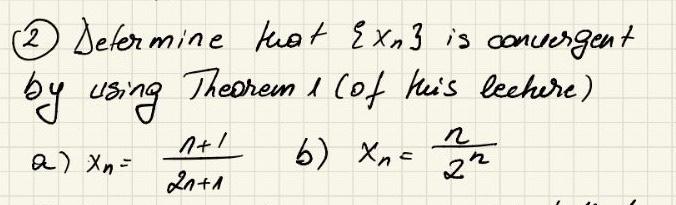 ② Determine that {xn} is convergent
by using Theorem 1 (of this lecture)
a) xn = (n+1)/(2n+1) b) xn = n/2^n